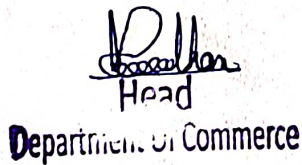 Head
Department Of Commerce